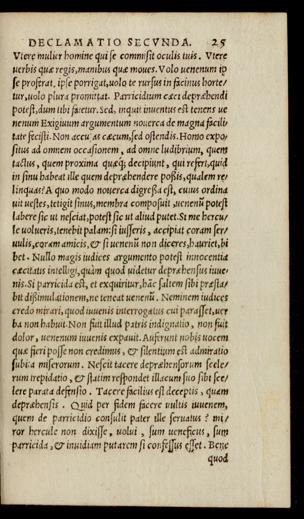 DECLAMATIO SECVNDA. 25
Vtere mulier homine qui se commisit oculis tuis. Vtere
uerbis quæ regis, manibus quæ moues. Volo uenenum ip
se proferat, ipse porrigat, uolo te rursus in facinus horte
tur, uolo plura promittat. Parricidium cæci depræhendi
potest, dum tibi fatetur. Sed, inquit inuentus est tenens ue
nenum Exiguum argumentum nouerca de magna facili
tate fecisti. Non accusas cæcum, sed ostendis. Homo expo
situs ad omnem occasionem, ad omne ludibrium, quem
tactus, quem proxima quæq; decipiunt, qui refert, quid
in sinu habeat ille quem depræhendere possis, qualem re
linquas? A quo modo nouerca digressa est, cuius ordina
uit uestes, tetigit sinus, membra composuit, uenenũ potest
habere sic ut nesciat, potest sic ut aliud putet. Si me hercu
le uolueris, tenebit palam: si iusseris, accipiat coram ser
uulis, coram amicis, & si uenenũ non diceres, hauriet, bi
bet. Nullo magis iudices argumento potest innocentia
cæcitatis intelligi, quàm quod uidetur depræhensus iuue
nis. Si parricida est, et exquiritur, hāc saltem sibi præsta-
bit dissimulationem, ne teneat uenenũ. Neminem iudices
credo mirari, quod iuuenis interrogatus cui parasset, uer
ba non habuit. Non fuit illud patris indignatio, non fuit
dolor, uenenum iuuenis expauit. Auferunt nobis uocem
quæ fieri posse non credimus, & silentium est admiratio
subita miserorum. Nescit tacere depræhensorum scele-
rum trepidatio, & statim respondet illæcum suo sibi sce-
lere parata defensio. Tacere facilius est deceptis, quàm
depræhensis. Quid per fidem facere uultis iuuenem,
quem de parricidio consulit pater ille seruatus? mi-
ror hercule non dixisse, uolui, sum ueneficus, sum
parricida, & inuidiam putarem si confessus esset. Bene
quod